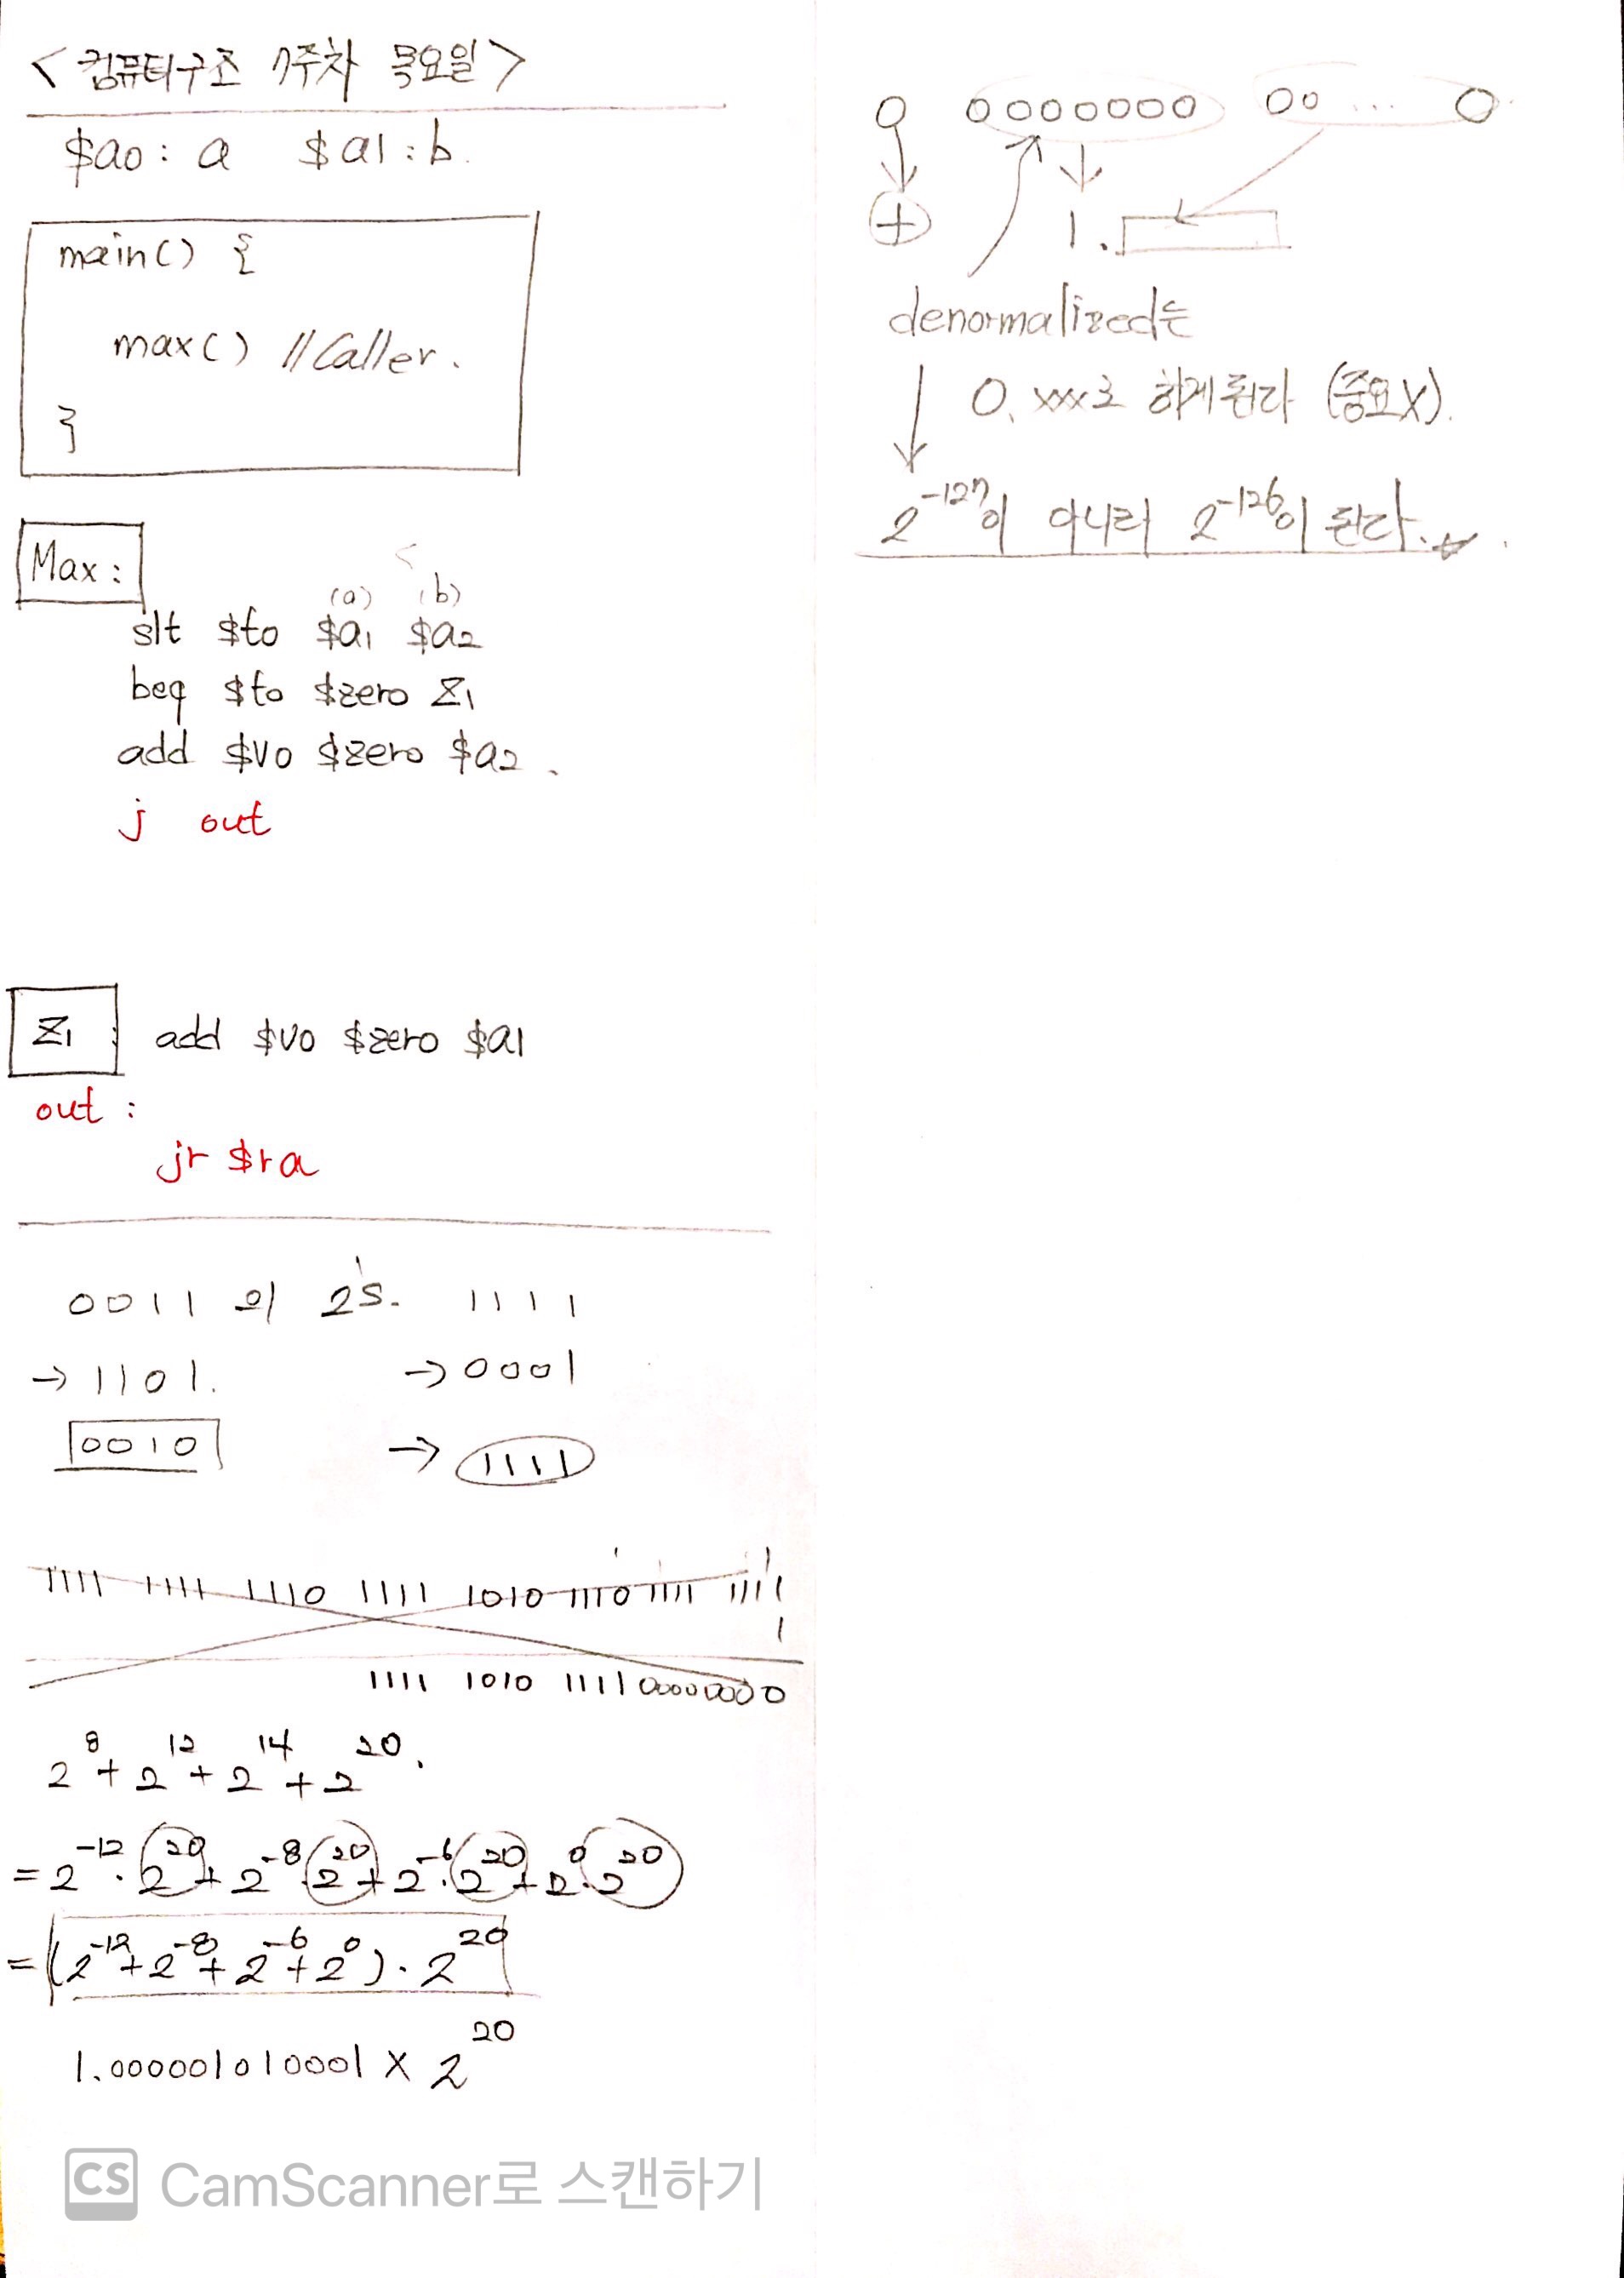 <컴퓨터구조 7주차 목요일>
$a0 : a $a1 : b.
main() {
max() //Caller.
}
Max :
<
(a) (b)
slt $t0 $a1 $a2
beq $t0 $zero Z1
add $v0 $zero $a2.
j out
Z1 : add $v0 $zero $a1
out :
jr $ra
0011 의 2's. 1111
→ 1101. → 0001
0010 → 1111
1111 1111 1110 1111 1010 1110 1111 1111
1
1111 1010 1111 0000 0000
2^8 + 2^12 + 2^14 + 2^20.
= 2^-12 · 2^20 + 2^-8 · 2^20 + 2^-6 · 2^20 + 2^0 · 2^20
= (2^-12 + 2^-8 + 2^-6 + 2^0) · 2^20
1.000001010001 × 2^20
CS CamScanner로 스캔하기
0 0000000 00 ... 0
+ 1.
denormalized는
0.xxx로 하게된다 (중요X).
2^-127이 아니라 2^-126이 된다.